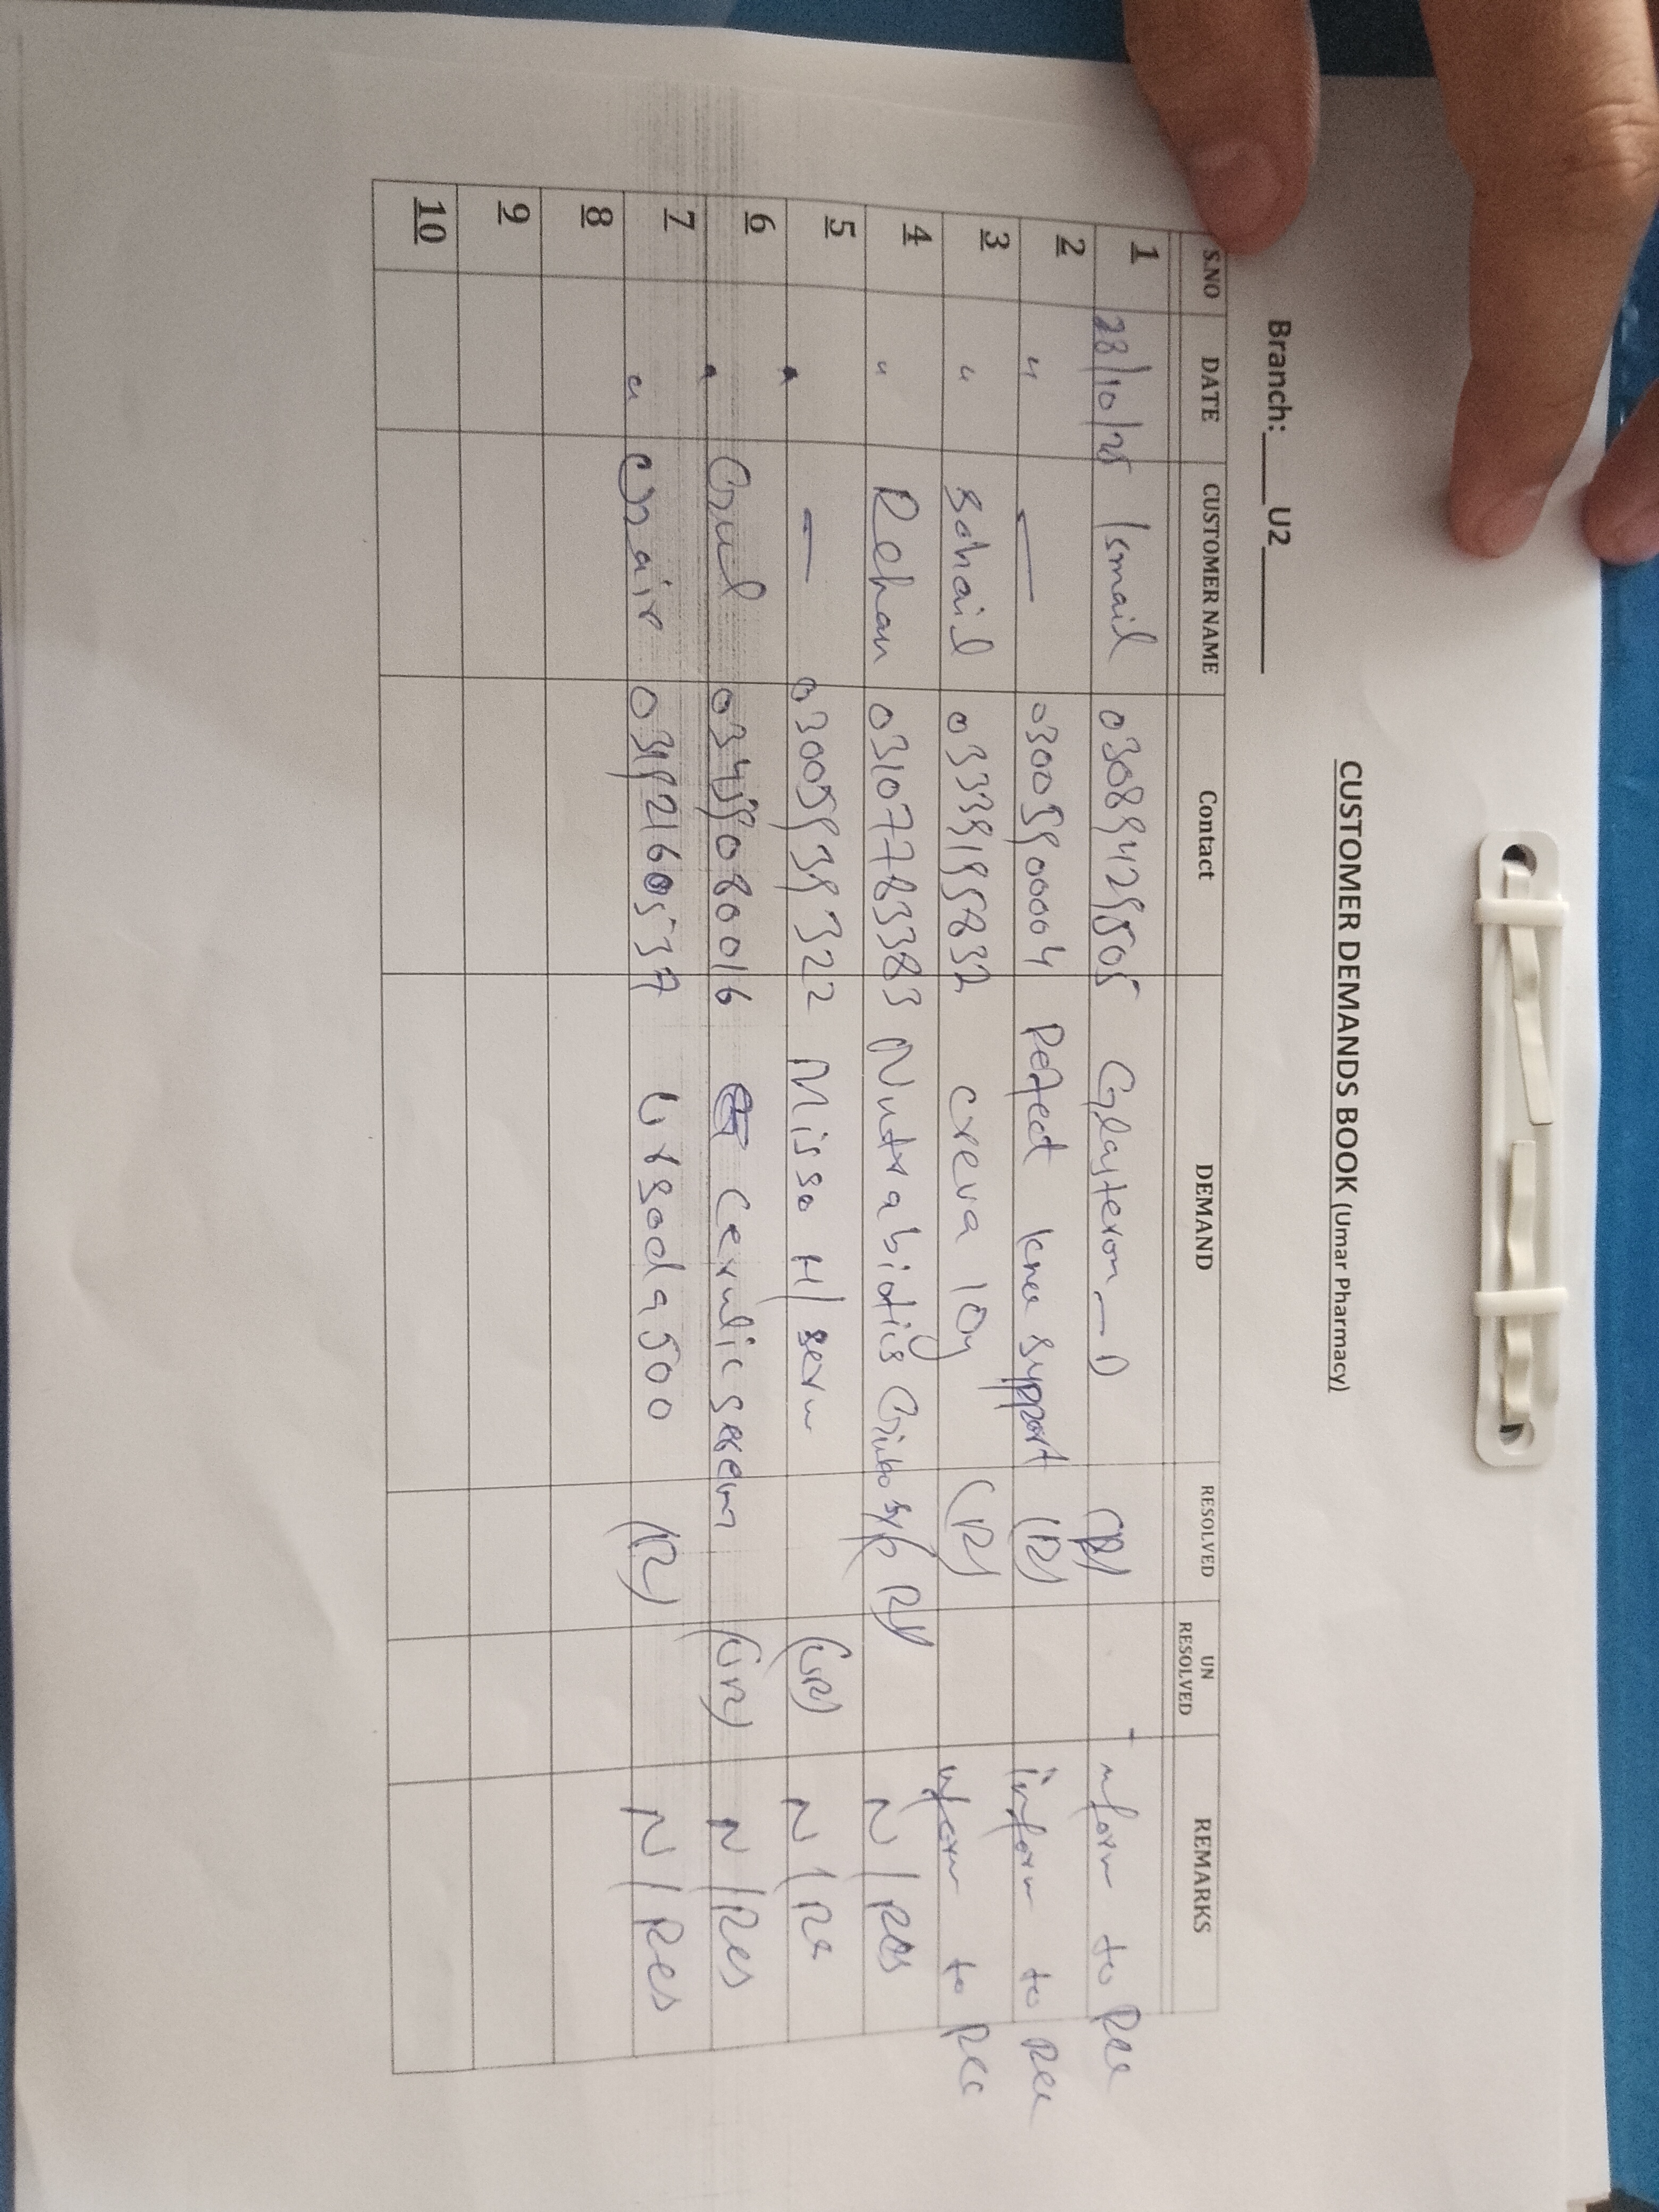 CUSTOMER DEMANDS BOOK (Umar Pharmacy)
Branch: U2
S.NO DATE CUSTOMER NAME Contact DEMAND RESOLVED UN RESOLVED REMARKS
1 28/10/25 Ismail 03089429505 (R) inform to Rec
2 " — 03005900004 Pefect knee support (R) inform to Rec
3 " Sohail 03339195832 creva 10mg (R) inform to Rec
4 " Rehan 03107783383 Nutrabiotics Ginko syp (R) N/Res
5 " — 03005939322 Misso H/seru (UR) N/Re
6 " Gul 03459080016 Cerulic serem (UR) N/Res
7 " Uzair 03192160537 Ursoda 500 (R) N/Res
8
9
10